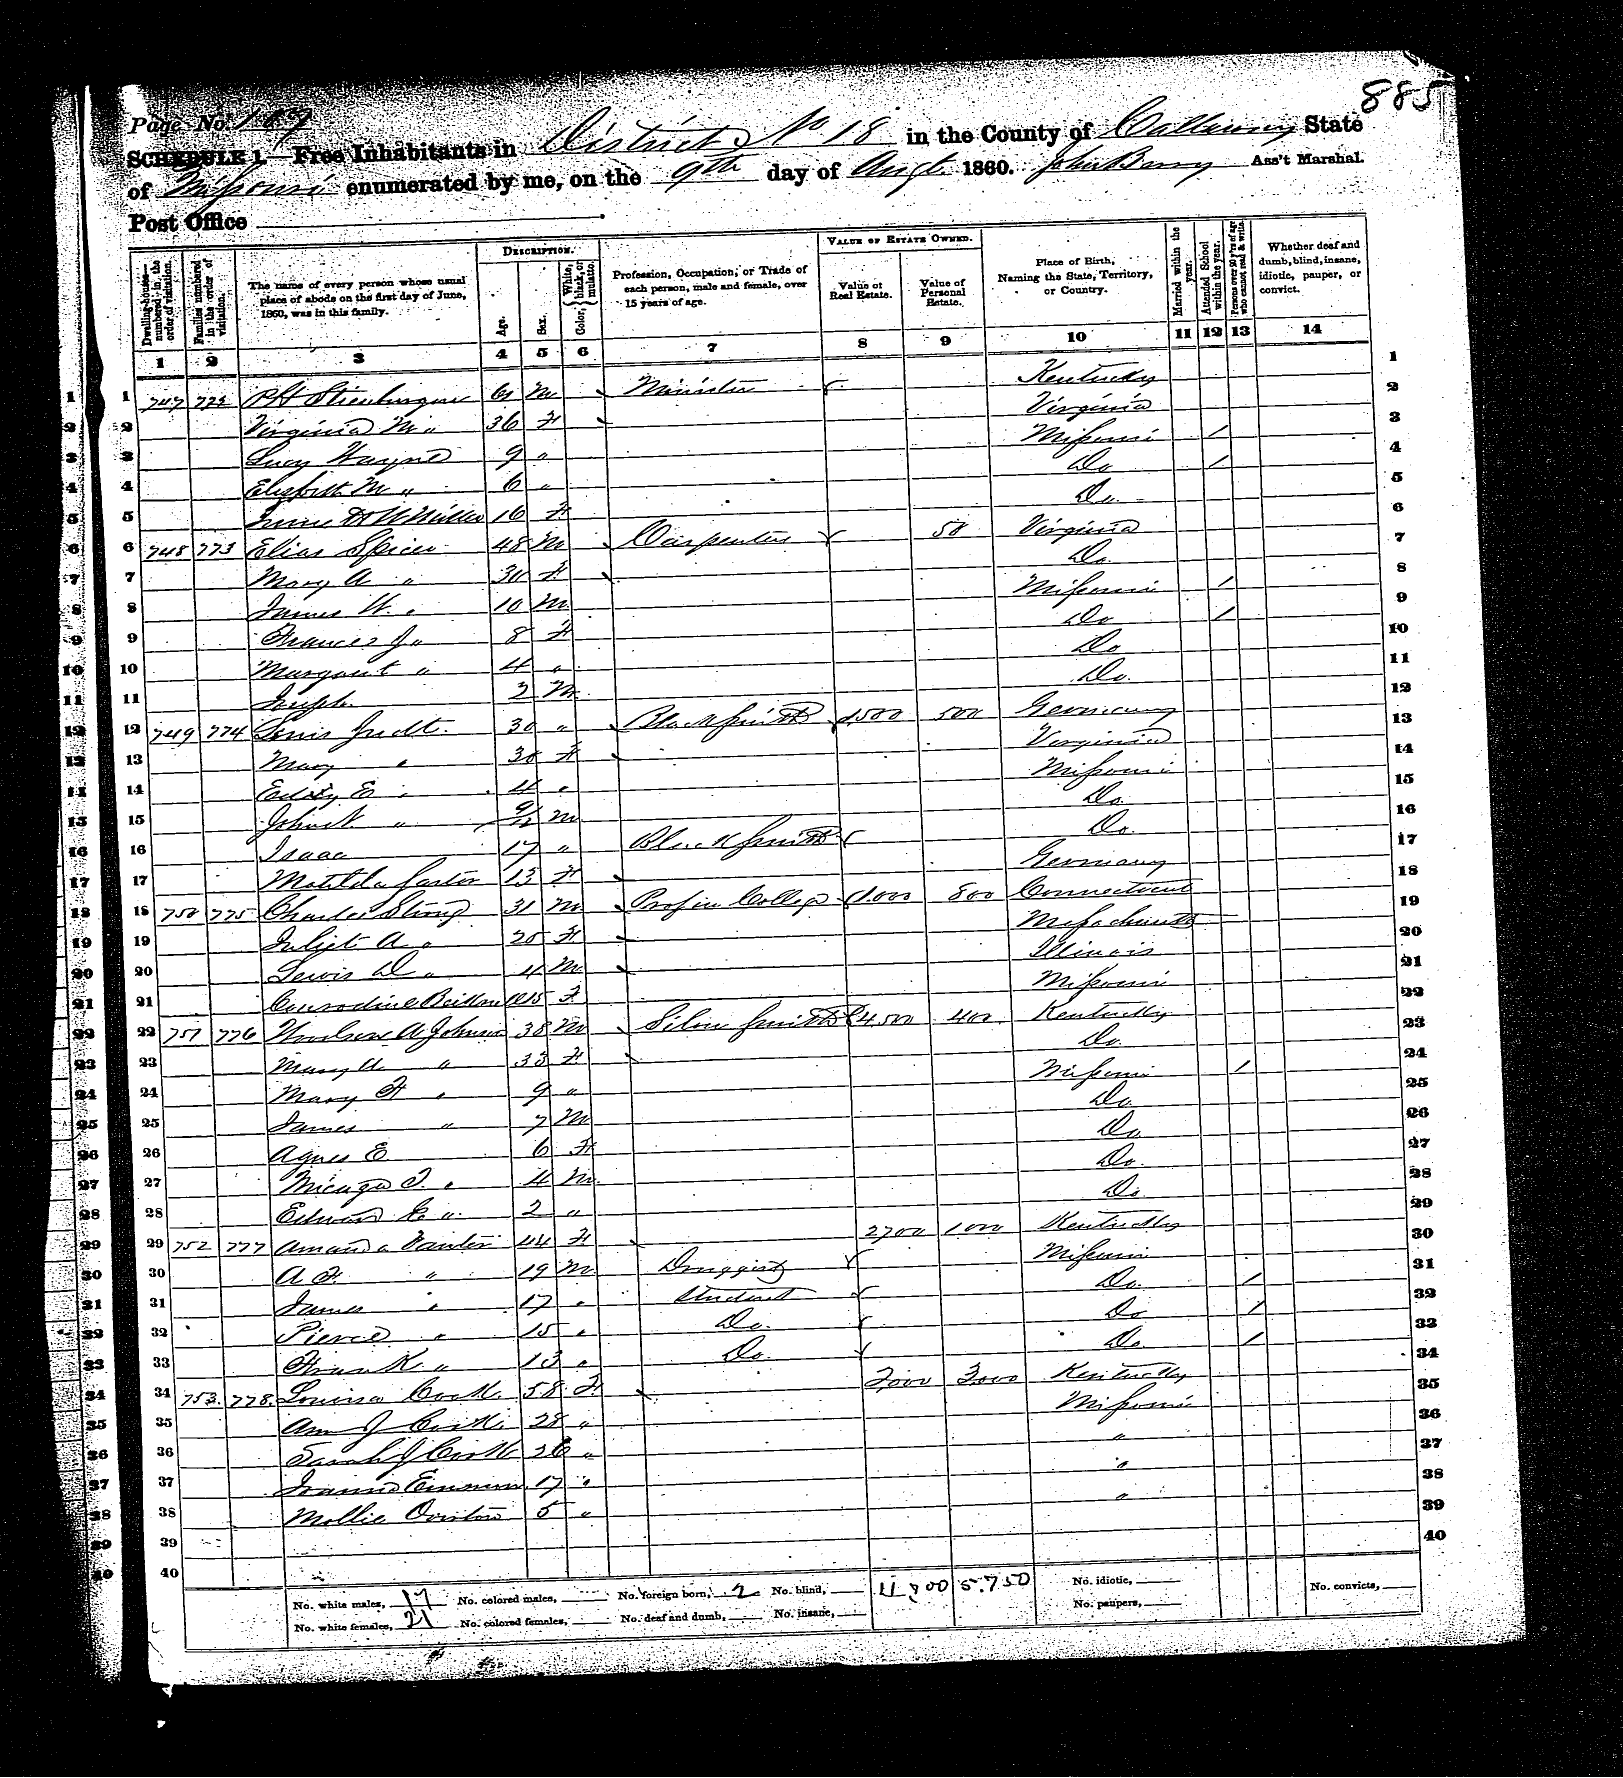 885
Page No. 169
SCHEDULE 1.—Free Inhabitants in District No 18 in the County of Callaway State
of Missouri enumerated by me, on the 9th day of Augt. 1860. John Berry Ass't Marshal.
Post Office
Dwelling-houses—numbered in the order of visitation. Families numbered in the order of visitation. The name of every person whose usual place of abode on the first day of June, 1860, was in this family. DESCRIPTION. Age. Sex. Color, White, black, or mulatto. Profession, Occupation, or Trade of each person, male and female, over 15 years of age. VALUE OF ESTATE OWNED. Value of Real Estate. Value of Personal Estate. Place of Birth, Naming the State, Territory, or Country. Married within the year. Attended School within the year. Persons over 20 y'rs of age who cannot read & write. Whether deaf and dumb, blind, insane, idiotic, pauper, or convict.
1 2 3 4 5 6 7 8 9 10 11 12 13 14
1 747 772 P H 61 M Minister Kentucky
2 Virginia M " 36 F Virginia
3 Lucy Wayne 9 " Missouri /
4 Elizabeth M " 6 " Do /
5 16 F Do
6 748 773 Elias Spicer 48 M Carpenter 50 Virginia
7 Mary A " F Do
8 James W. " 10 M Missouri /
9 Frances J " 8 F Do /
10 Margaret " 4 " Do
11 Joseph 2 M Do.
12 749 774 Louis 30 " Blacksmith 1,500 500 Germany
13 Mary " F Virginia
14 E " 4 " Missouri
15 John " 9/12 M Do.
16 Isaac 17 " Blacksmith Do.
17 Matilda 13 F Germany
18 750 775 Charles Strong 31 M Prof in College 1,000 800 Connecticut
19 Juliet A " 25 F Massachusetts
20 Lewis D " 4 M Illinois
21 15 F Missouri
22 751 776 Woodson A Johnson 38 M Silver Smith 4,500 400 Kentucky
23 Mary A " 33 F Do.
24 Mary F " 9 " Missouri /
25 James " 7 M Do.
26 Agnes E 6 F Do
27 T " 4 M Do.
28 Edward " 2 " Do
29 752 777 Amanda 44 F 2700 1000 Kentucky
30 A F " 19 M Druggist Missouri
31 James " 17 " Student Do. /
32 Pierce " 15 " Do. Do /
33 Frank " 13 " Do. Do /
34 753. 778. Louisa 58 F 2,000 3,000 Kentucky
35 Ann J 28 " Missouri
36 Sarah J 26 " "
37 17 " "
38 Mollie Overton 5 " "
39
40
No. white males, 17 No. colored males, No. foreign born, 2 No. blind, 11,700 5,750 No. idiotic, No. convicts,
No. white females, 21 No. colored females, No. deaf and dumb, No. insane, No. paupers,